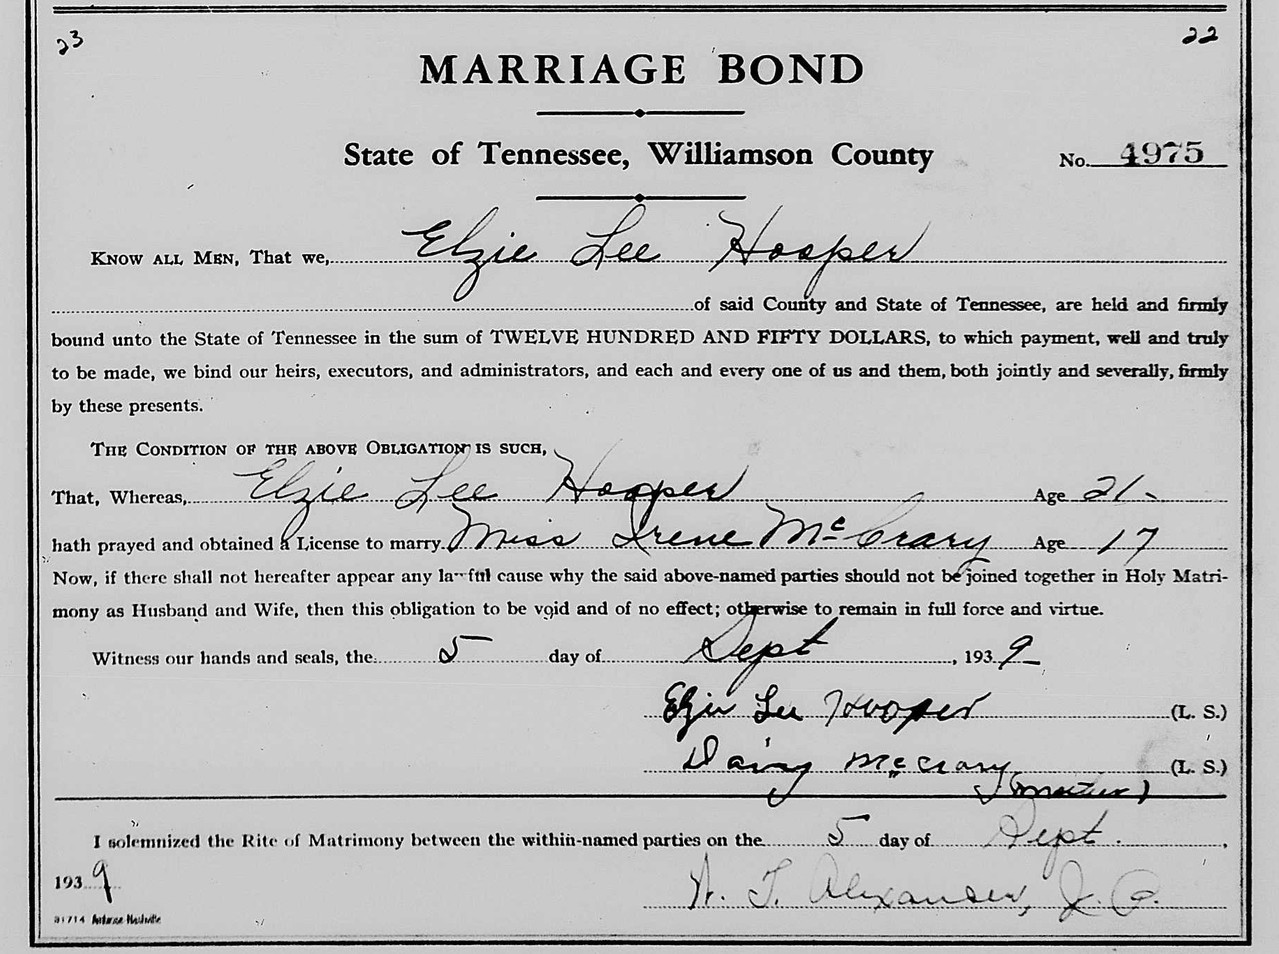 23 22
MARRIAGE BOND
State of Tennessee, Williamson County No. 4975
KNOW ALL MEN, That we, Elzie Lee Hooper
of said County and State of Tennessee, are held and firmly
bound unto the State of Tennessee in the sum of TWELVE HUNDRED AND FIFTY DOLLARS, to which payment, well and truly
to be made, we bind our heirs, executors, and administrators, and each and every one of us and them, both jointly and severally, firmly
by these presents.
THE CONDITION OF THE ABOVE OBLIGATION IS SUCH,
That, Whereas, Elzie Lee Hooper Age 21.
hath prayed and obtained a License to marry Miss Irene McCrary Age 17
Now, if there shall not hereafter appear any lawful cause why the said above-named parties should not be joined together in Holy Matri-
mony as Husband and Wife, then this obligation to be void and of no effect; otherwise to remain in full force and virtue.
Witness our hands and seals, the 5 day of Sept, 1939
Elzie Lee Hooper (L. S.)
Daisy McCrary (L. S.)
(Mother)
I solemnized the Rite of Matrimony between the within-named parties on the 5 day of Sept.,
1939 Alexander, J. P.
31714 Nashville